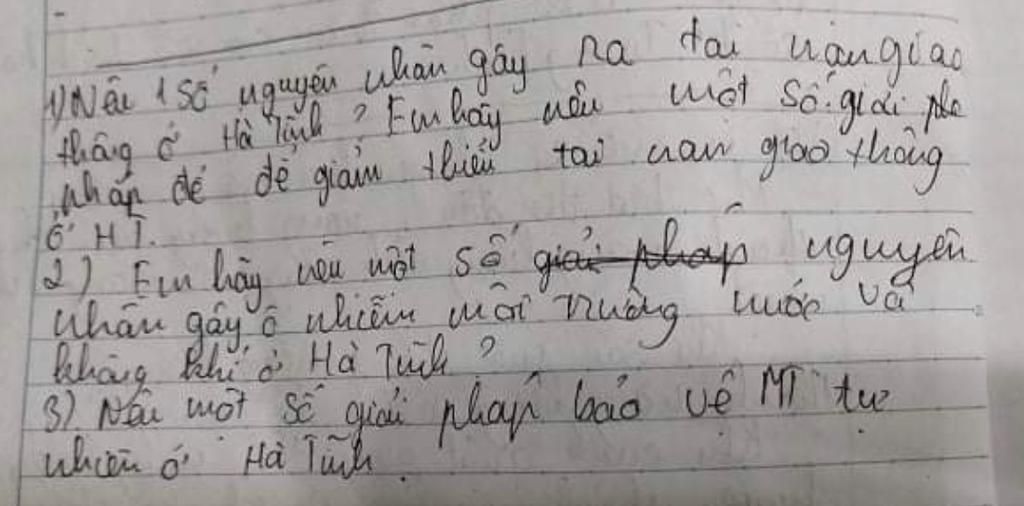 1) Nêu 1 số nguyên nhân gây ra tai nạn giao
thông ở Hà Tĩnh ? Em hãy nêu một số giải
pháp để để giảm thiểu tai nạn giao thông
ở HT.
2) Em hãy nêu một số giải pháp nguyên
nhân gây ô nhiễm môi trường nước và
không khí ở Hà Tĩnh ?
3) Nêu một số giải pháp bảo vệ MT tự
nhiên ở Hà Tĩnh